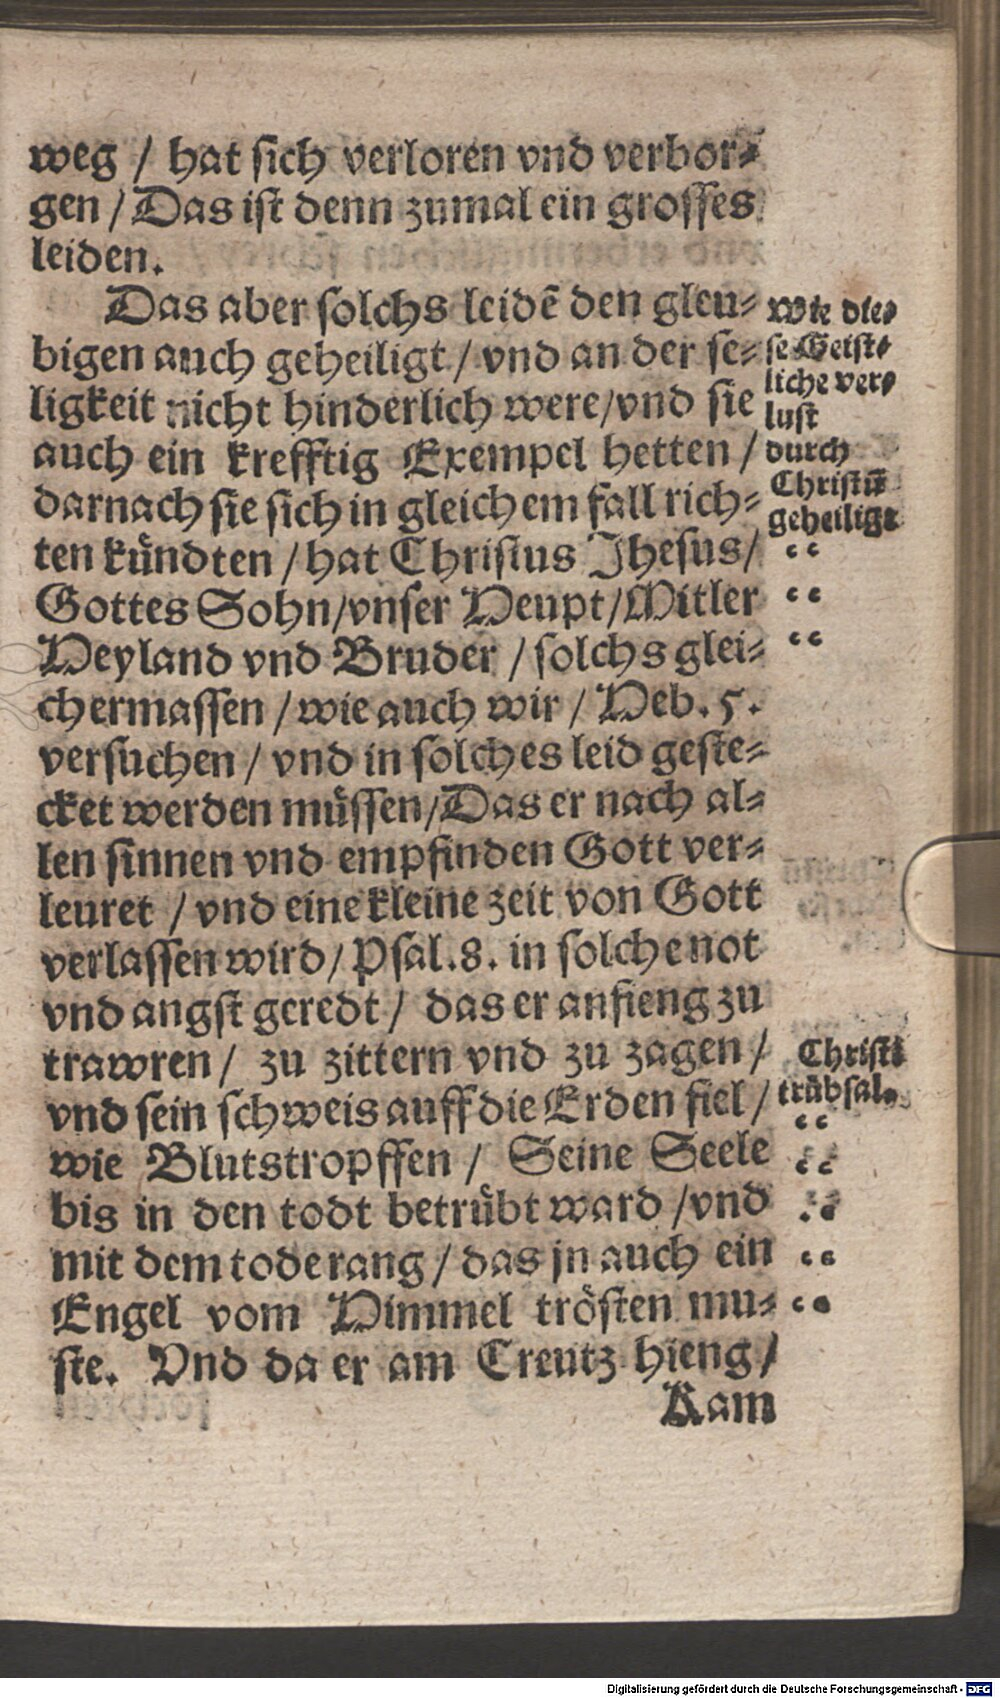 weg / hat sich verloren vnd verbor⸗
gen / Das ist denn zumal ein grosses
leiden.
Das aber solchs leidē den gleu⸗
bigen auch geheiligt / vnd an der se⸗
ligkeit nicht hinderlich were/vnd sie
auch ein krefftig Exempel hetten /
darnach sie sich in gleichem fall rich⸗
ten kündten / hat Christus Jhesus/
Gottes Sohn/vnser Heupt/Mitler
Heyland vnd Bruder / solchs glei⸗
chermassen / wie auch wir / Heb. 5.
versuchen / vnd in solches leid geste⸗
cket werden müssen/Das er nach al⸗
len sinnen vnd empfinden Gott ver⸗
leuret / vnd eine kleine zeit von Gott
verlassen wird / Psal. 8. in solche not
vnd angst geredt / das er anfieng zu
trawren / zu zittern vnd zu zagen /
vnd sein schweis auff die Erden fiel /
wie Blutstropffen / Seine Seele
bis in den todt betrübt ward / vnd
mit dem tode rang / das jn auch ein
Engel vom Himmel trösten mu⸗
ste. Vnd da er am Creutz hieng /
Kam
Wie die⸗
se Geist⸗
liche ver⸗
lust
durch
Christū
geheiligt
“
“
“
Christi
trübsal.
“
“
“
“
“
Digitalisierung gefördert durch die Deutsche Forschungsgemeinschaft - DFG